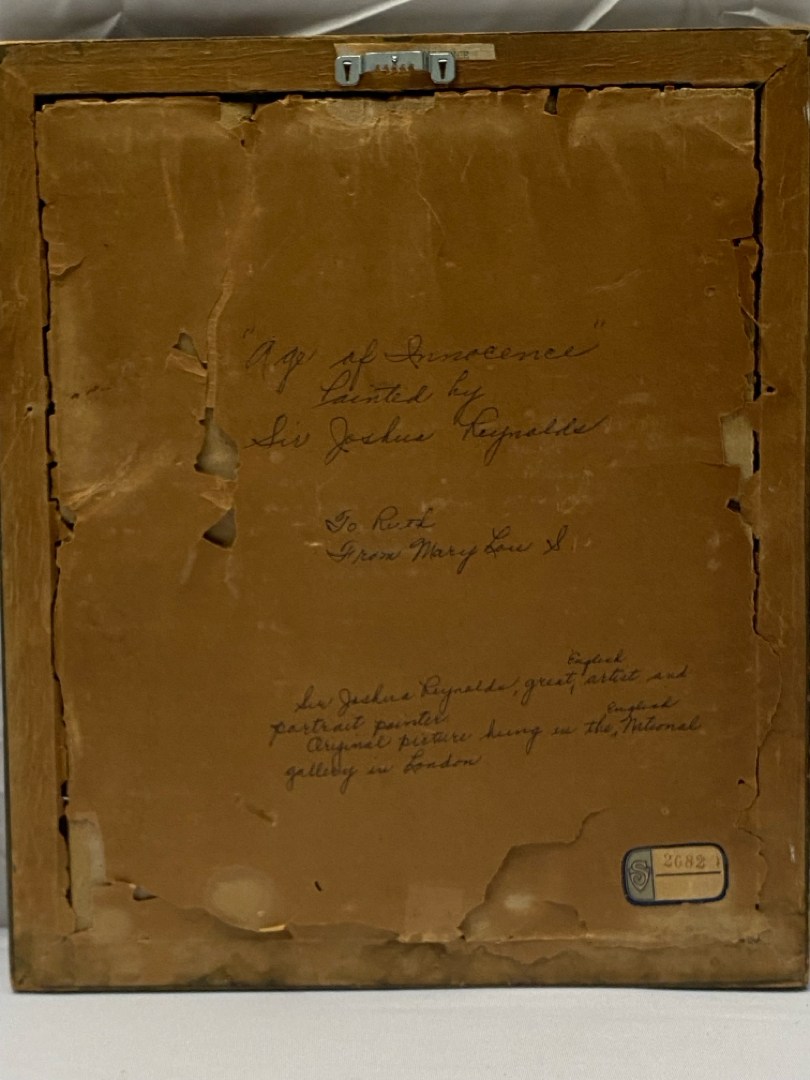 "Age of Innocence"
Painted by
Sir Joshua Reynolds
To Ruth
From Mary Lou S.
English
Sir Joshua Reynolds, great, artist and
portrait painter
English
Original picture hung in the, National
gallery in London
S 2682